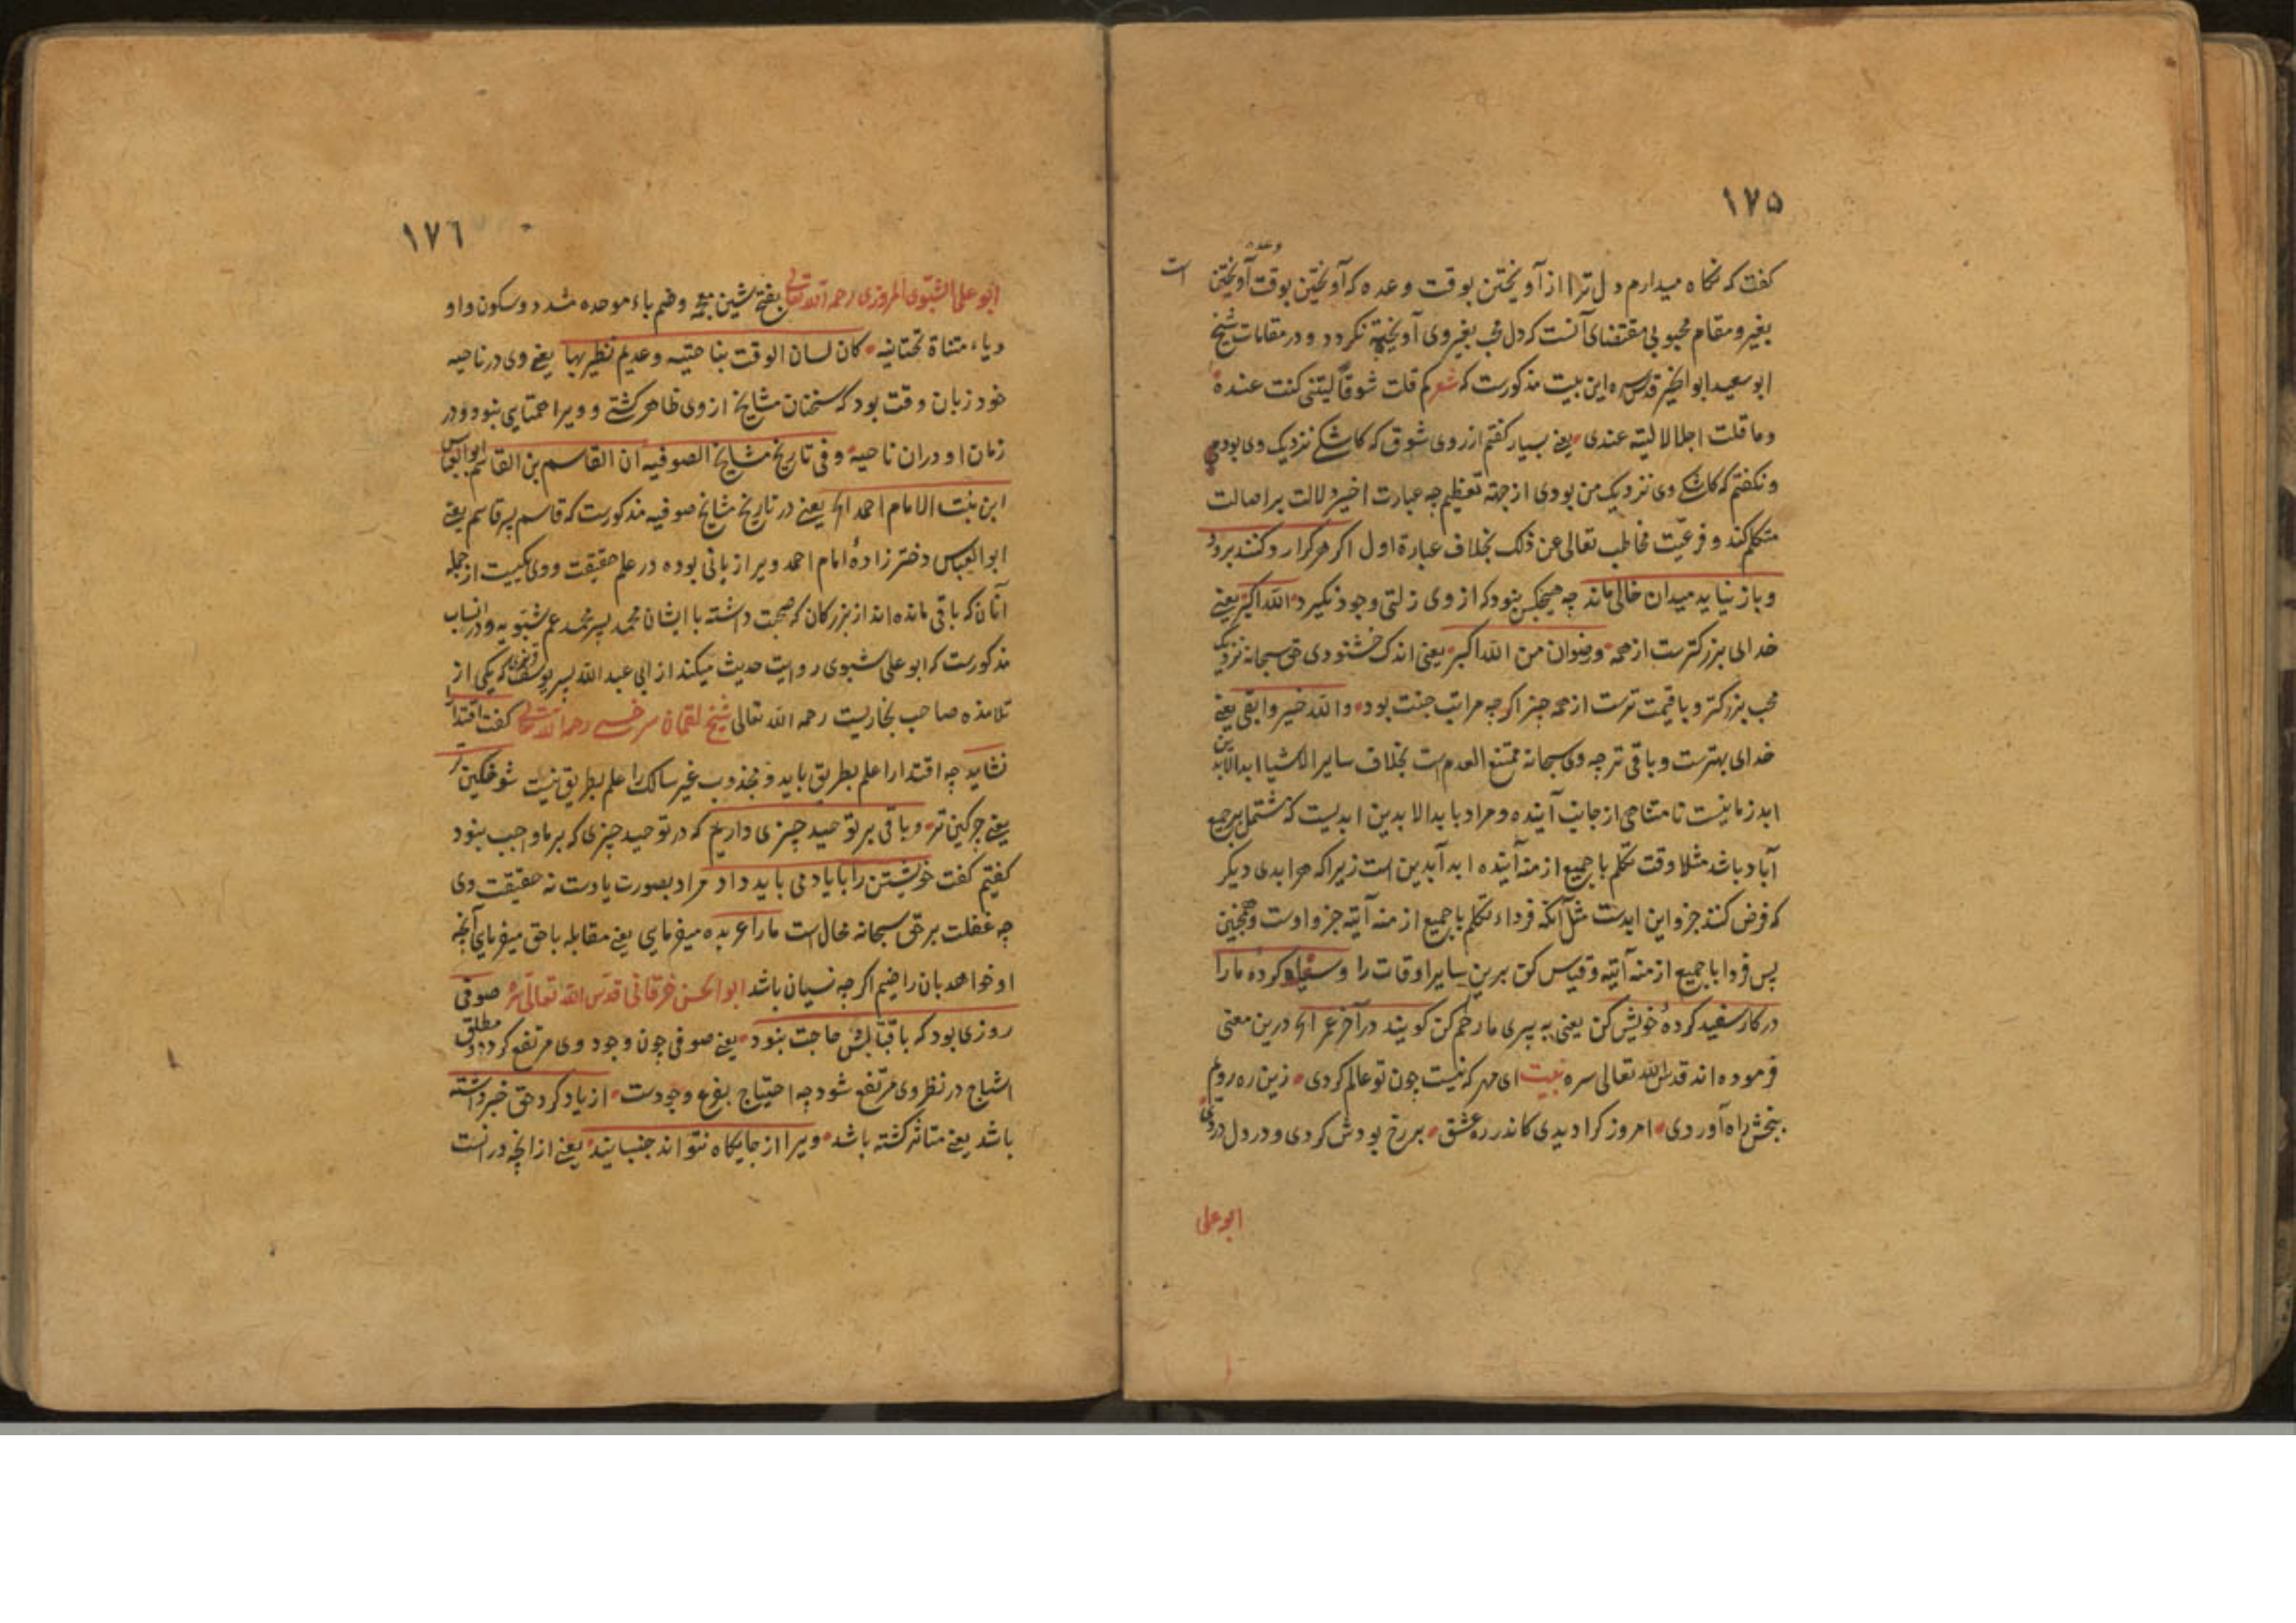 ١٧۵
كفت كه نكاه ميدارم دل ترا از آويختن بوقت وعده كه آويختن بوقت وعده آويختن است
بغير و مقام محبوبى مقتضاى آنست كه دل محب بغير وى آويخته نكردد و در مقامات شيخ
ابوسعيد ابوالخير قدس سره اين بيت مذكورست كه شعر كم قلت شوقاً ليتنى كنت عنده
وما قلت اجلالا ليته عندى يعنے بسيار كفتم از روى شوق كه كاشكے نزديك وى بودمى
و نكفتم كه كاشكے وى نزديك من بودى از جهة تعظيم چه عبارت اخير دلالت بر اصالت
متكلم كند و فرعيت مخاطب تعالى عن ذلك بخلاف عبارة اول اكر هركرا رد كنند برود
و باز نيايد ميدان خالى ماند چه هيچكس نبود كه از وى زلتى وجود نكيرد الله اكبر يعنے
خداى بزركترست از همه ورضوان من الله اكبر يعنى اندك خشنودى حق سبحانه نزديك
محب بزركتر و باقيمت ترست از همه چيز اكر چه مراتب جنت بود والله خير وابقى يعنے
خداى بهترست و باقى تر چه وى سبحانه ممتنع العدم است بخلاف ساير الاشيا ابد الابدين
ابد زمانيست نا متناهى از جانب آينده و مراد بابد الابدين ابديست كه مشتمل بر جميع
آباد باشد مثلا وقت تكلم با جميع ازمنه آينده ابد آبدين است زيرا كه هر ابدى ديكر
كه فرض كنند جزو اين ابدست مثل آنكه فرداء تكلم با جميع ازمنه آتيه جزو اوست و همچنين
پس فردا با جميع ازمنه آتيه و قياس كن برين ساير اوقات را و سياه كرده ما را
در كار سفيد كرده خويش كن يعنى به پيرى ما رحم كن كويند در آخر عمر الخ درين معنى
فرموده اند قدس الله تعالى سره بيت اى مهر كه نيست چون تو عالم كردى زين ره رويم
ببخش راه آوردى امروز كرا ديدى كاندر ره عشق بر رخ بودش كردى و در دل دردى
ابو على
١٧٦
ابو على الشبوى المروزى رحمه الله تعالى بفتح شين معجمه و ضم باء موحده مشدد و سكون واو
وياء مثناة تحتانيه كان لسان الوقت بناحيته وعديم نظير بها يعنے وى در ناحيه
خود زبان وقت بود كه سخنان مشايخ از وى ظاهر كشتے و ويرا همتايى نبود و در
زمان او دران ناحيه وفى تاريخ مشايخ الصوفيه ان القاسم بن القاسم ابو العباس
ابن بنت الامام احمد الخ يعنے در تاريخ مشايخ صوفيه مذكورست كه قاسم پسر قاسم يعنے
ابو العباس دختر زاده امام احمد ويرا زبانى بوده در علم حقيقت و وى يكيست از جمله
آنان كه باقى مانده اند از بزركان كه صحبت داشته با ايشان محمد پسر محمد عم شبويه و در انساب
مذكورست كه ابو على شبوى روايت حديث ميكند از ابى عبد الله پسر يوسف فربرى كه يكى از
تلامذه صاحب بخاريست رحمه الله تعالى شيخ لقمان سرخسے رحمه الله تعالى كفت اقتدا را
نشايد چه اقتدا را علم بطريق بايد و مجذوب غير سالك را علم بطريق نيست شوخكين تر
يعنے چركين تر و باقى بر توحيد چيزى داريم كه در توحيد چيزى كه بر ما واجب نبود
كفتيم كفت خويشتن را با ياد مى بايد داد مراد بصورت يادست نه حقيقت وى
چه غفلت بر حق سبحانه محال است ما را عربده ميفرمايى يعنے مقابله با حق ميفرمايى آنچه
او خواهد بان راضيم اكر چه نسيان باشد ابو الحسن خرقانى قدس الله تعالى سره صوفى
روزى بود كه بافتابش حاجت نبود يعنے صوفى چون وجود وى مرتفع كردد و مطلق
اشباح در نظر وى مرتفع شود چه احتياج بفرع وجودست از ياد كرد حق خبر داشته
باشد يعنے متاثر كشته باشد ويرا از جايكاه نتواند جنبانيد يعنے از انچه در انست